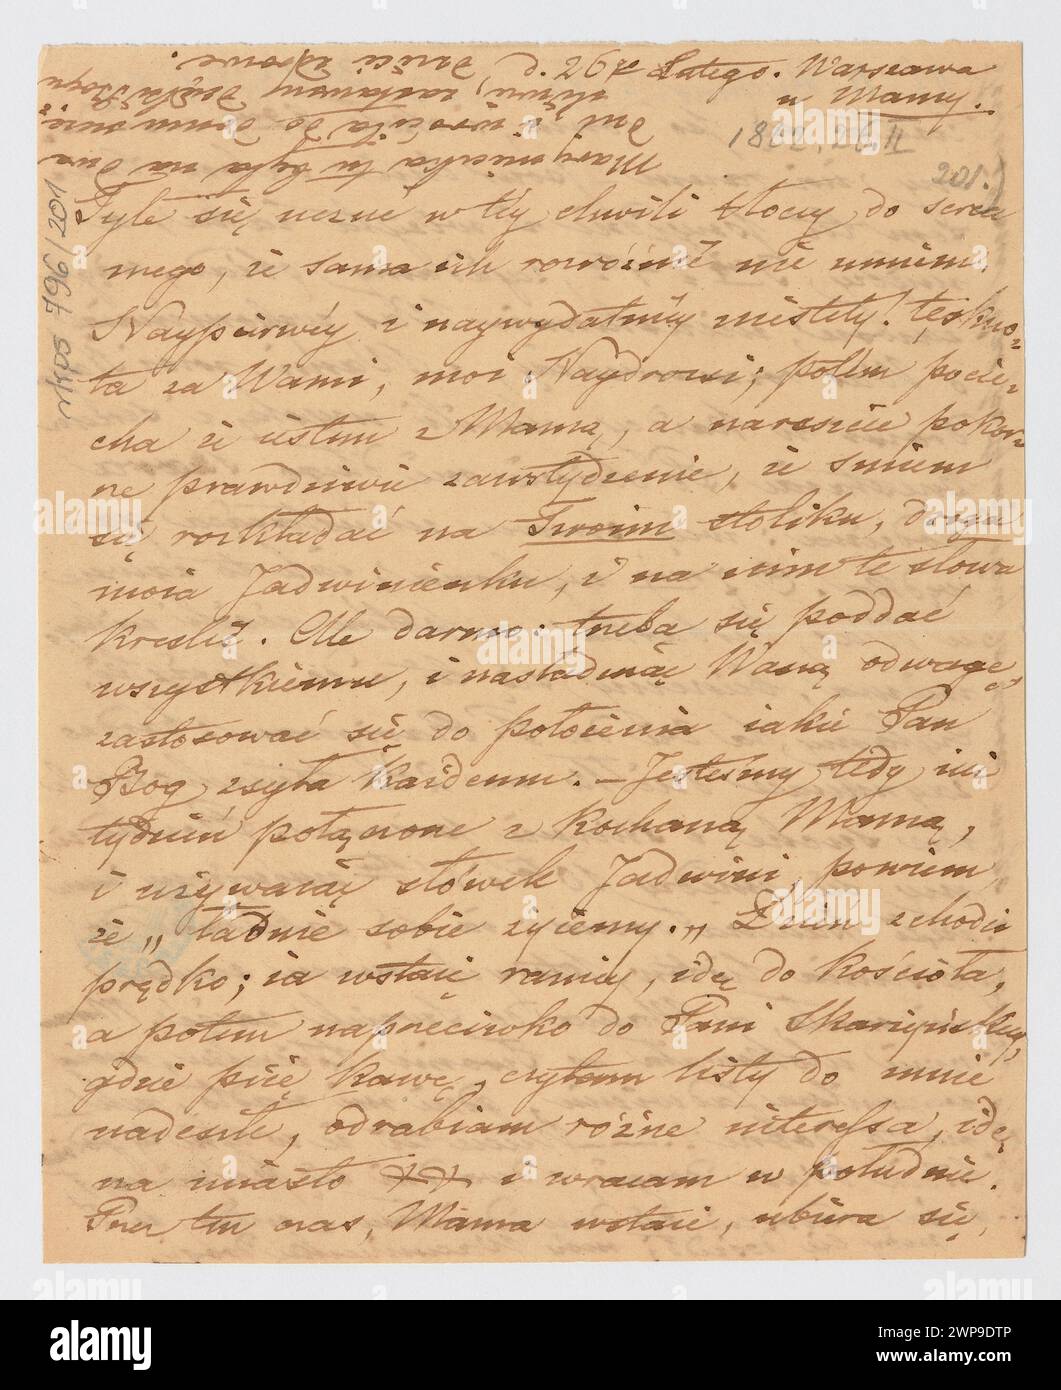 d. 26go Lutego. Warszawa
u Mamy.
1862. 26.II
201.)
MPS 796/201
Marynieczka tu była na dwa
dni i wróciła do domu swie
zastawszy dzięki Bogu
dzieci zdrowe.
Tyle się uczuć w téy chwili tłoczy do serca
mego, że sama ich rozróżnić nie umiem.
Naypierwéy i naywydatniéy niestety! tęskno-
ta za Wami, moi Naydrożsi; potém pocie-
cha że iestem z Mamą, a nareszcie pokor-
ne prawdziwie zawstydzenie, że śmiem
się rozkładać na Twoim stoliku, droga
moia Jadwinieńku, i na nim te słowa
kreślić. Ale darmo: trzeba się poddać
wszystkiemu, i naśladuiąc Waszą odwagę,
zastosować się do położenia iakie Pan
Bog zsyła każdemu. – Jesteśmy tedy iuż
tydzień połączone z kochaną Mamą,
i używaiąc słówek Jadwini, powiem,
że „ładnie sobie żyiemy.„ Dzień schodzi
prędko; ia wstaię raniey, idę do kościoła,
a potem naprzeciwko do Pani Skarżyńskiey,
gdzie piię kawę, czytam listy do mnie
nadeszłe, odrabiam różne interessa, idę
na miasto i wracam w południe.
Przez ten czas, Mama wstaie, ubiera się,
alamy
alamy
Image ID: 2WP9DTP
www.alamy.com